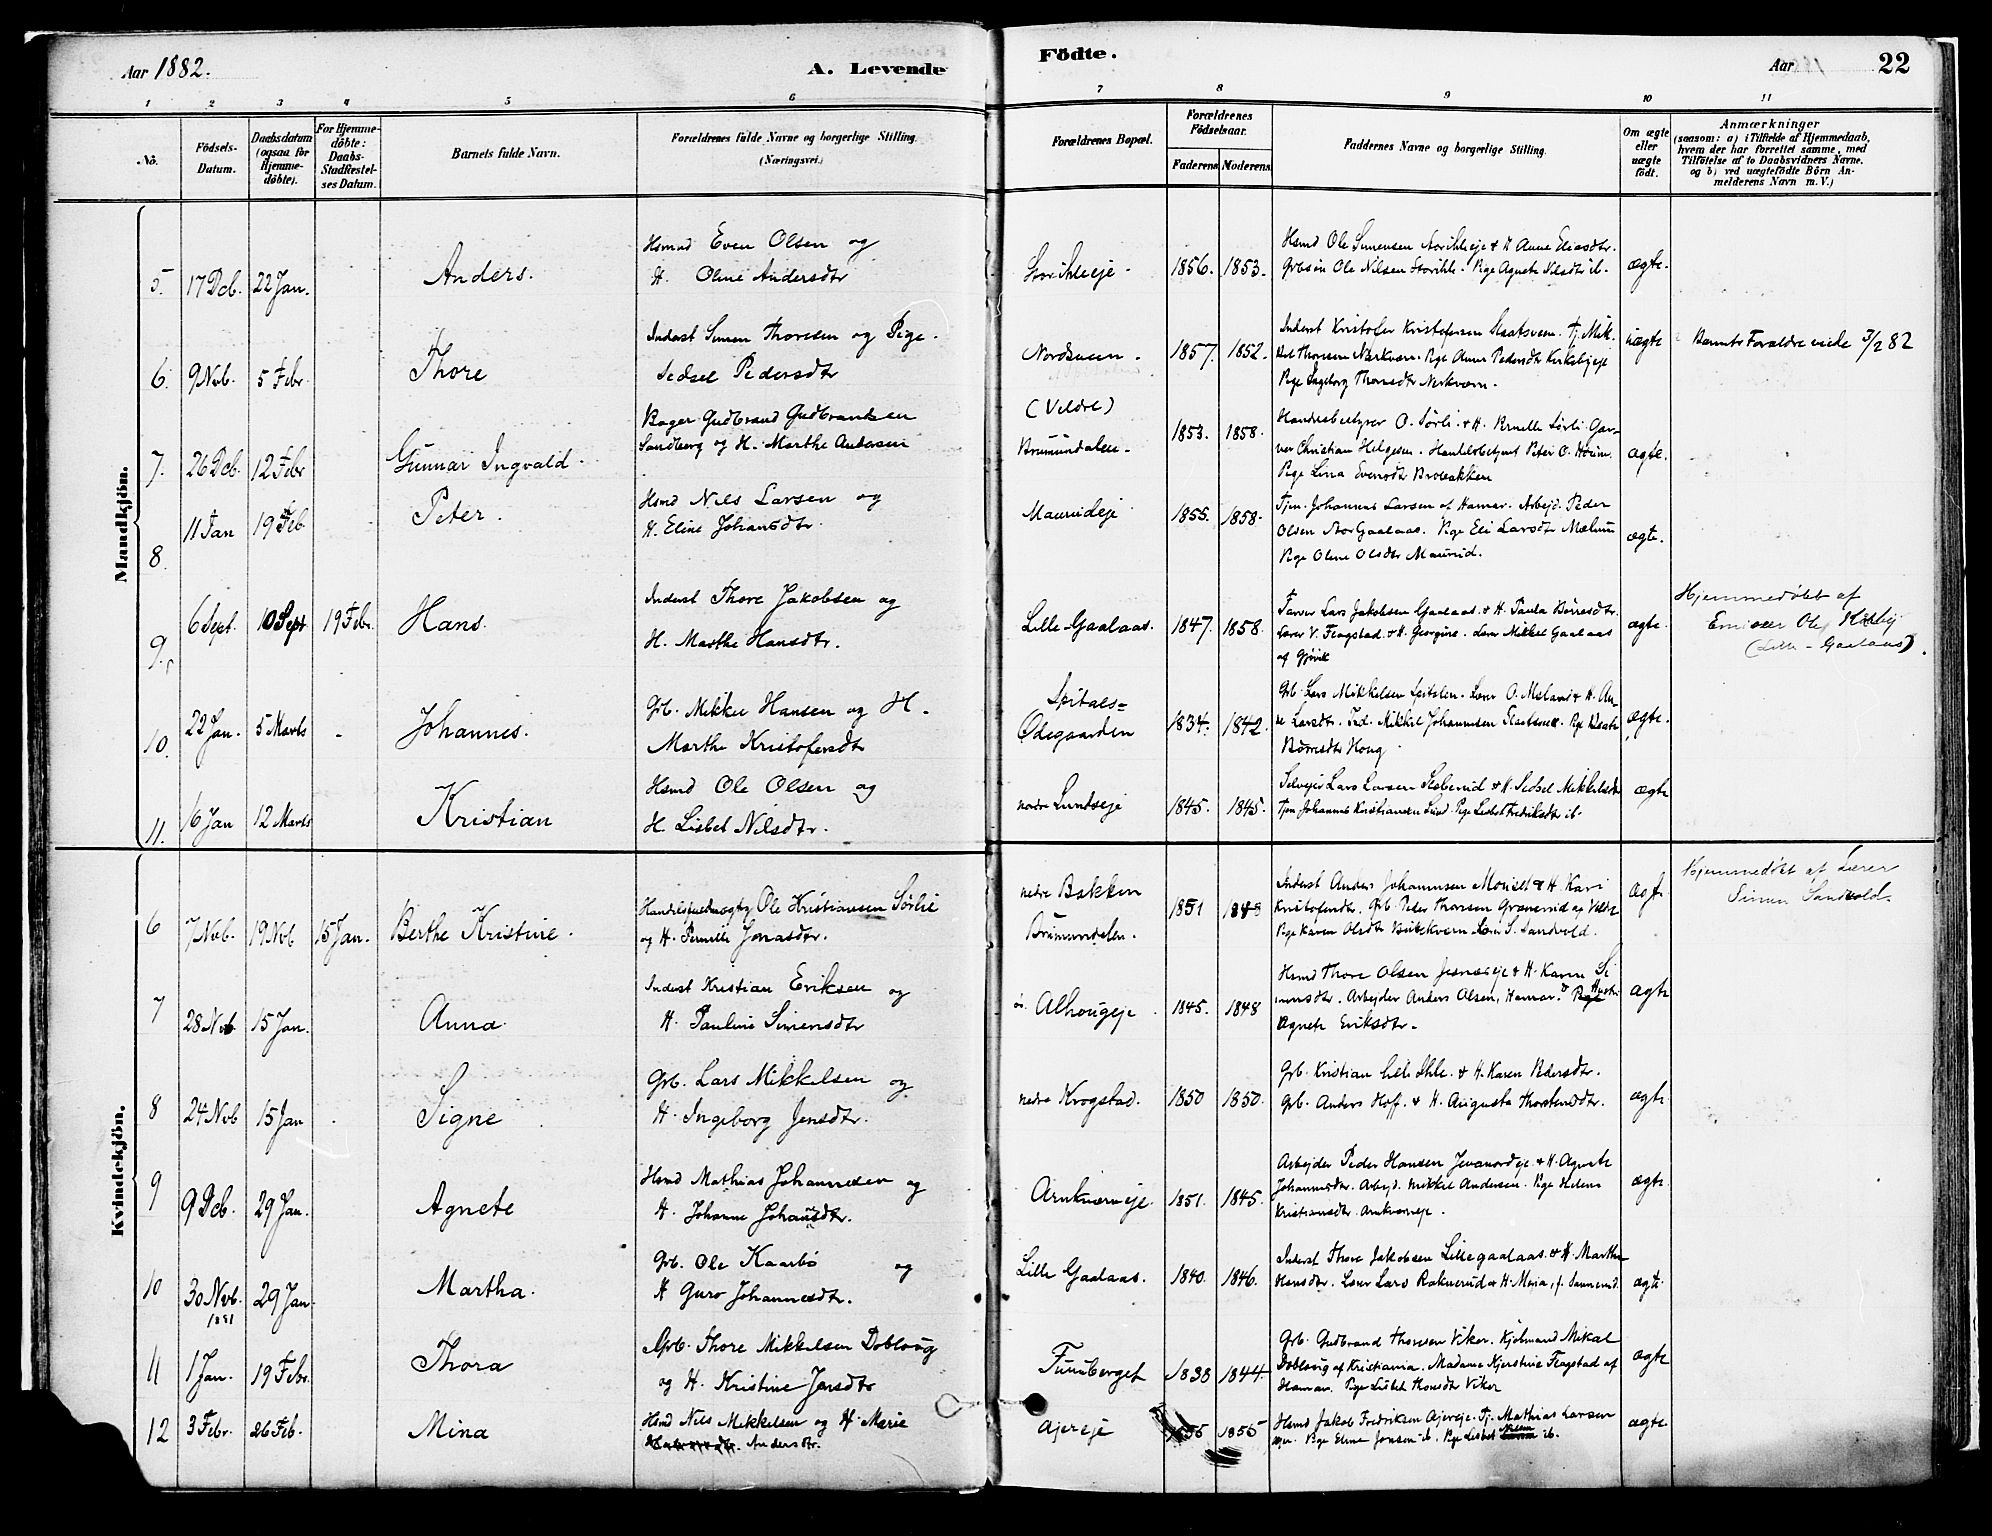 Aar 1882.
A. Levende
Födte.
Aar
22
1 2 3 4 5 6 7 8 9 10 11
No.
Födsels-
Datum.
Daabsdatum
(ogsaa for
Hjemme-
döbte).
For Hjemme-
döbte:
Daabs-
Stadfæstel-
ses Datum.
Barnets fulde Navn.
Forældrenes fulde Navne og borgerlige Stilling.
(Næringsvei.)
Forældrenes Bopæl.
Forældrenes
Födselsaar.
Faderens Moderens
Faddernes Navne og borgerlige Stilling.
Om ægte
eller
uægte
födt.
Anmærkninger
(saasom: a) i Tilfælde af Hjemmedaab,
hvem der har forrettet samme, med
Tilföielse af to Daabsvidners Navne.
og b) ved uægtefödte Börn An-
melderens Navn m. V.)
Mandkjön.
5. 17 Dcb. 22 Jan. Anders.
Hsmnd Even Olsen og
H. Oline Andersdtr
Storihleeje. 1856. 1853.
Hsmd Ole Simensen Storihleeje & H Anne Eliasdtr.
Grbsøn Ole Nilsen Storihle. Pige Agnete Nilsdtr ib.
ægte.
6. 9 Nvb. 5 Febr. Thore
Inderst Simen Thoresen og Pige
Sedsel Pedersdtr
Nordsveen. 1857. 1852.
Inderst Kristofer Kristofersen Staatsveen. Tj. Mik-
kel Thoresen Nerkvern. Pige Anne Pedersdtr Kirkebyeje
Pige Ingeborg Thoresdtr Nerkvern.
uægte
Barnets Forældre viede 3/2 82
7. 26 Dcb. 12 Febr Gunnar Ingvald.
Bager Gudbrand Gudbrandsen
Sandberg og H. Marthe Andersen
(Veldre)
Brumundalen. 1853. 1858.
Handelsbestyrer O. Sørli. & H. Pernelle Sørli. Gar-
ver Christian Helgesen. Handelsbetjent Peter O. Hoium.
Pige Lina Evensdtr Brobakken
ægte.
8. 11 Jan 19 Feb Peter.
Hsmd Nils Larsen og
H. Eline Johansdtr.
Maurudeje 1855. 1858.
Tjen. Johannes Larsen af Hamar. Arbejd. Peder
Olsen StorGaalaas. Pige Eli Larsdtr Mælum
Pige Oline Olsdtr Maurud.
ægte.
9. 6 Sept. 10 Sept 19 Febr. Hans.
Inderst Thore Jakobsen og
H. Marthe Hansdtr.
Lille-Gaalaas. 1847. 1858.
Farver Lars Jakobsen Gaalaas. & H. Paula Børresdtr.
Lærer V. Flagstad. & H. Georgine. Lærer Mikkel Gaalaas
af Gjøvik
ægte.
Hjemmedøbt af
Ole
(Lille-Gaalaas).
10. 22 Jan. 5 Marts - Johannes.
Grb. Mikkel Hansen og H.
Marthe Kristofersdtr
Spitals=
Ødegaarden 1834. 1842.
Grb. Lars Mikkelsen Spitalen. Lærer O. Mæland & H. An-
ne Larsdtr. Ind. Mikkel Johannesen Staatsveen. Pige
Børresdtr Houg.
ægte.
11. 16 Jan 12 Marts Kristian
Hsmd Ole Olsen og
H. Lisbet Nilsdtr.
nordre Lundseje 1845. 1845.
Selvejer Lars Larsen & H. Sedsel Mikkelsdtr
Tjen Johannes Kristiansen Lund. Pige Lisbet Fredriksdtr ib.
ægte
Kvindekjön.
6 7 Nvb. 19 Nvb 15 Jan. Berthe Kristine.
Handelsfuldmægtig Ole Kristiansen Sørlie
og H. Pernille Jonasdtr.
nedre Bakken
Brumundalen. 1851 1848
Inderst Anders Johannesen Monset & H. Kari
Kristofersdtr. Grb. Peder Thorsen Grønerud og Veldre
Pige Karen Olsdtr Lærer S. Sandvold.
ægte.
Hjemmedøbt af Lærer
Simen Sandvold.
7 28 Nvb 15 Jan. Anna.
Inderst Kristian Eriksen og
H. Pauline Simensdtr
ø. Alhougeje. 1845. 1848
Hsmd Thore Olsen Jesneseje & H. Karen Si-
mensdtr. Arbejder Anders Olsen, Hamar. & Hustru
Agnete Eriksdtr.
ægte
8 24 Nvb 15 Jan Signe
Grb. Lars Mikkelsen og
H. Ingeborg Jensdtr.
nedre Krogstad. 1850 1850.
Grb. Kristian Lille Ihle. & H. Karen Pedersdtr.
Grb. Anders Hof. & H. Augusta Thorstensdtr.
ægte
9 9 Dcb. 29 Jan. Agnete
Hsmd Mathias Johannesen og
H. Johanne Johansdtr.
Arnkverneje. 1851. 1845.
Arbejder Peder Hansen Jevanordeje. & H. Agnete
Johannesdtr. Arbejd. Mikkel Andersen. Pige Helene
Kristiansdtr. Arnkverneje.
ægte
10 30 Nvb. 1881 29 Jan. Martha.
Grb. Ole Kaarbø og
H Guro Johannesdtr.
Lille Gaalaas. 1840. 1846.
Inderst Thore Jakobsen Lillegaalaas. & H. Marthe
Hansdtr. Lærer Lars Roknerud & H. Maria, f. Sannerud.
ægte.
11 1 Jan. 19 Febr. Thora
Grb. Thore Mikkelsen Dobloug
og H. Kristine Jensdtr
Furuberget 1838 1844.
Grb. Gudbrand Thoresen Viker. Kjøbmand Mikal
Dobloug af Kristiania. Madame Kjerstine Flagstad af
Hamar. Pige Lisbet Thoresdtr Viker
ægte
12 3 Febr. 26 Feb. Mina
Hsmd Nils Mikkelsen og H. Marie
Andersdtr.
Ajereje 1855 1855
Hsmd Jakob Fredriksen Ajereje. Tj. Mathias Larsen
Ajer. Pige Eline Jonsen ib. Pige Lisbet ib.
ægte